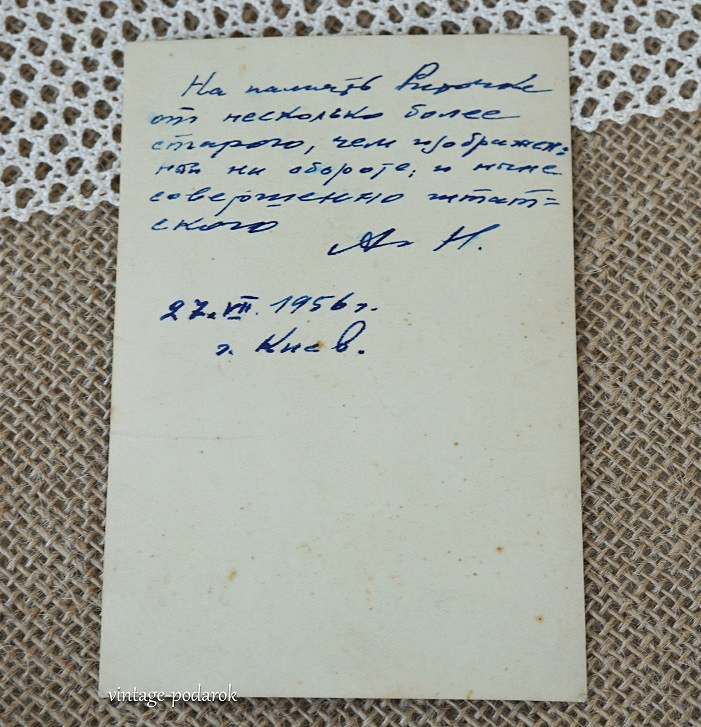 На память Риточке
от несколько более
старого, чем изображен=
ный на обороте, и ныне
совершенно штат=
ского
А. Н.
27. VII. 1956 г.
г. Киев.
vintage-podarok